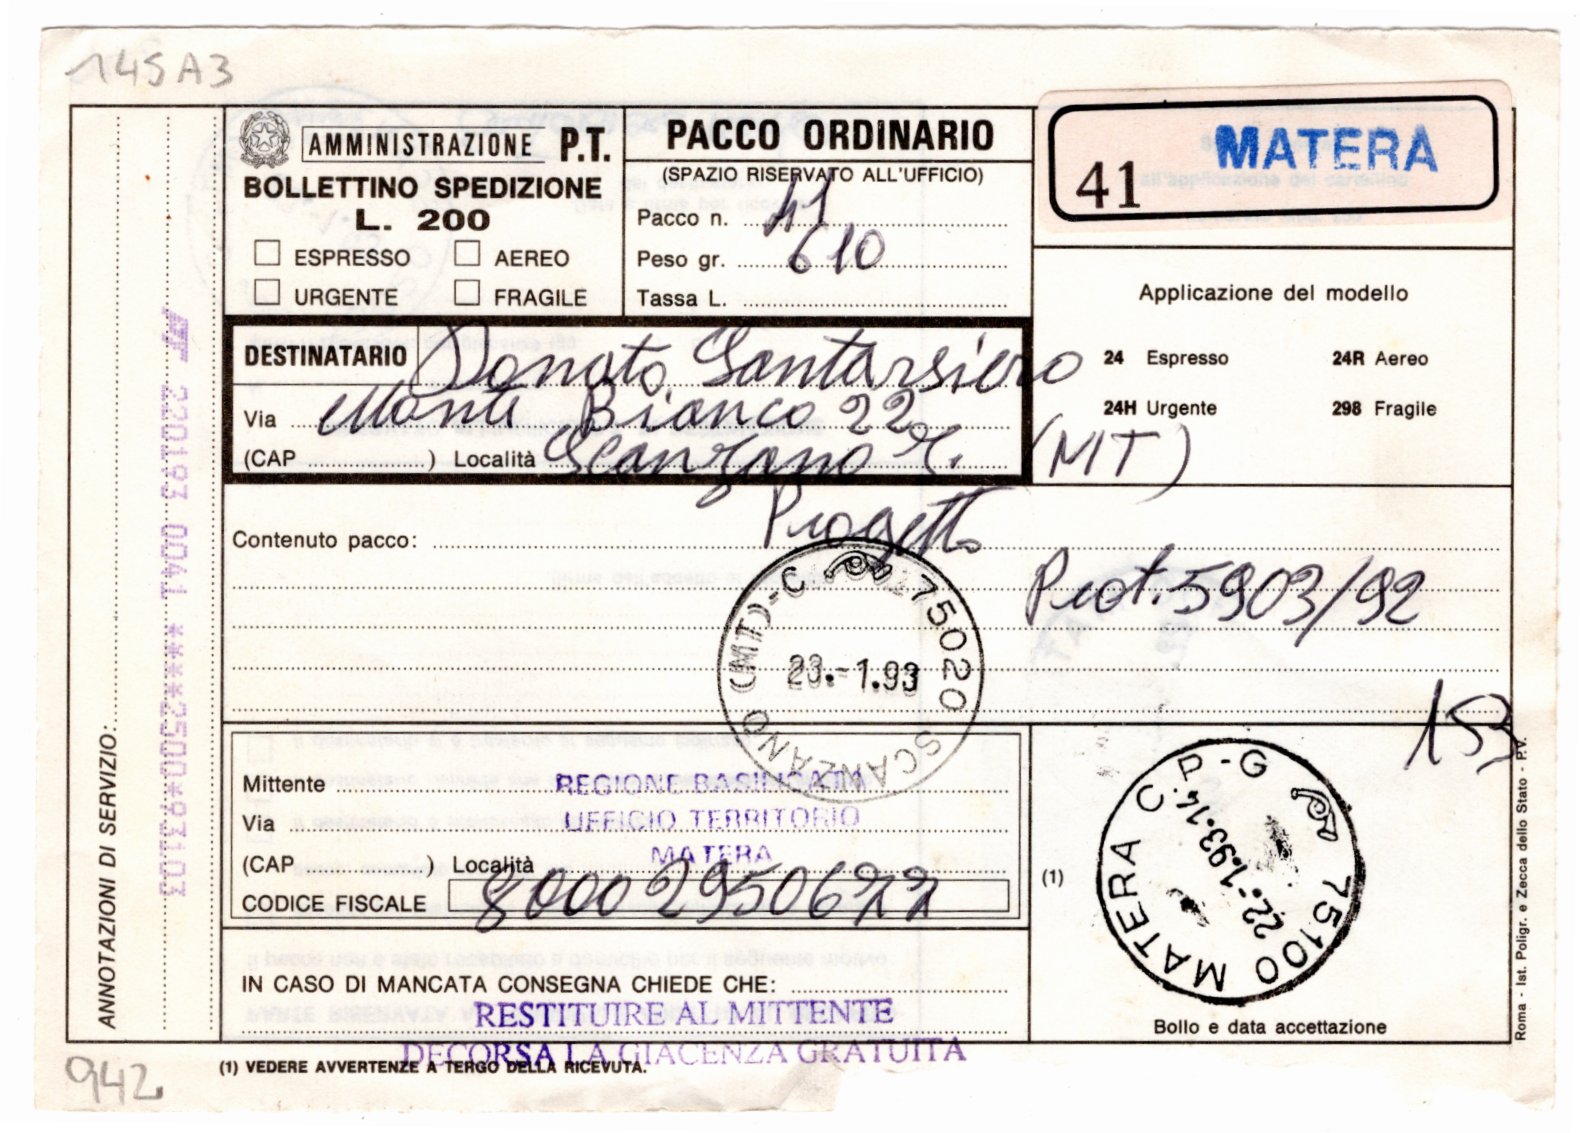 145A3
AMMINISTRAZIONE P.T.
BOLLETTINO SPEDIZIONE
L. 200
ESPRESSO AEREO
URGENTE FRAGILE
PACCO ORDINARIO
(SPAZIO RISERVATO ALL'UFFICIO)
Pacco n. 41
Peso gr. 610
Tassa L.
41 MATERA
Applicazione del modello
24 Espresso 24R Aereo
24H Urgente 298 Fragile
DESTINATARIO Donato Santarsiero
Via Monte Bianco 22
(CAP ) Località Scanzano J. (MT)
Contenuto pacco: Progetto
Prot. 5903/92
75020 SCANZANO (MT)-C
23.-1.93
153
Mittente REGIONE BASILICATA
Via UFFICIO TERRITORIO
MATERA
(CAP ) Località
CODICE FISCALE 80002950677
IN CASO DI MANCATA CONSEGNA CHIEDE CHE:
RESTITUIRE AL MITTENTE
DECORSA LA GIACENZA GRATUITA
(1)
75100 MATERA C.P-G
22.-1.93.14
Bollo e data accettazione
(1) VEDERE AVVERTENZE A TERGO DELLA RICEVUTA.
942
ANNOTAZIONI DI SERVIZIO:
220193 0041 ****2500*93103
Roma - Ist. Poligr. e Zecca dello Stato - P.V.